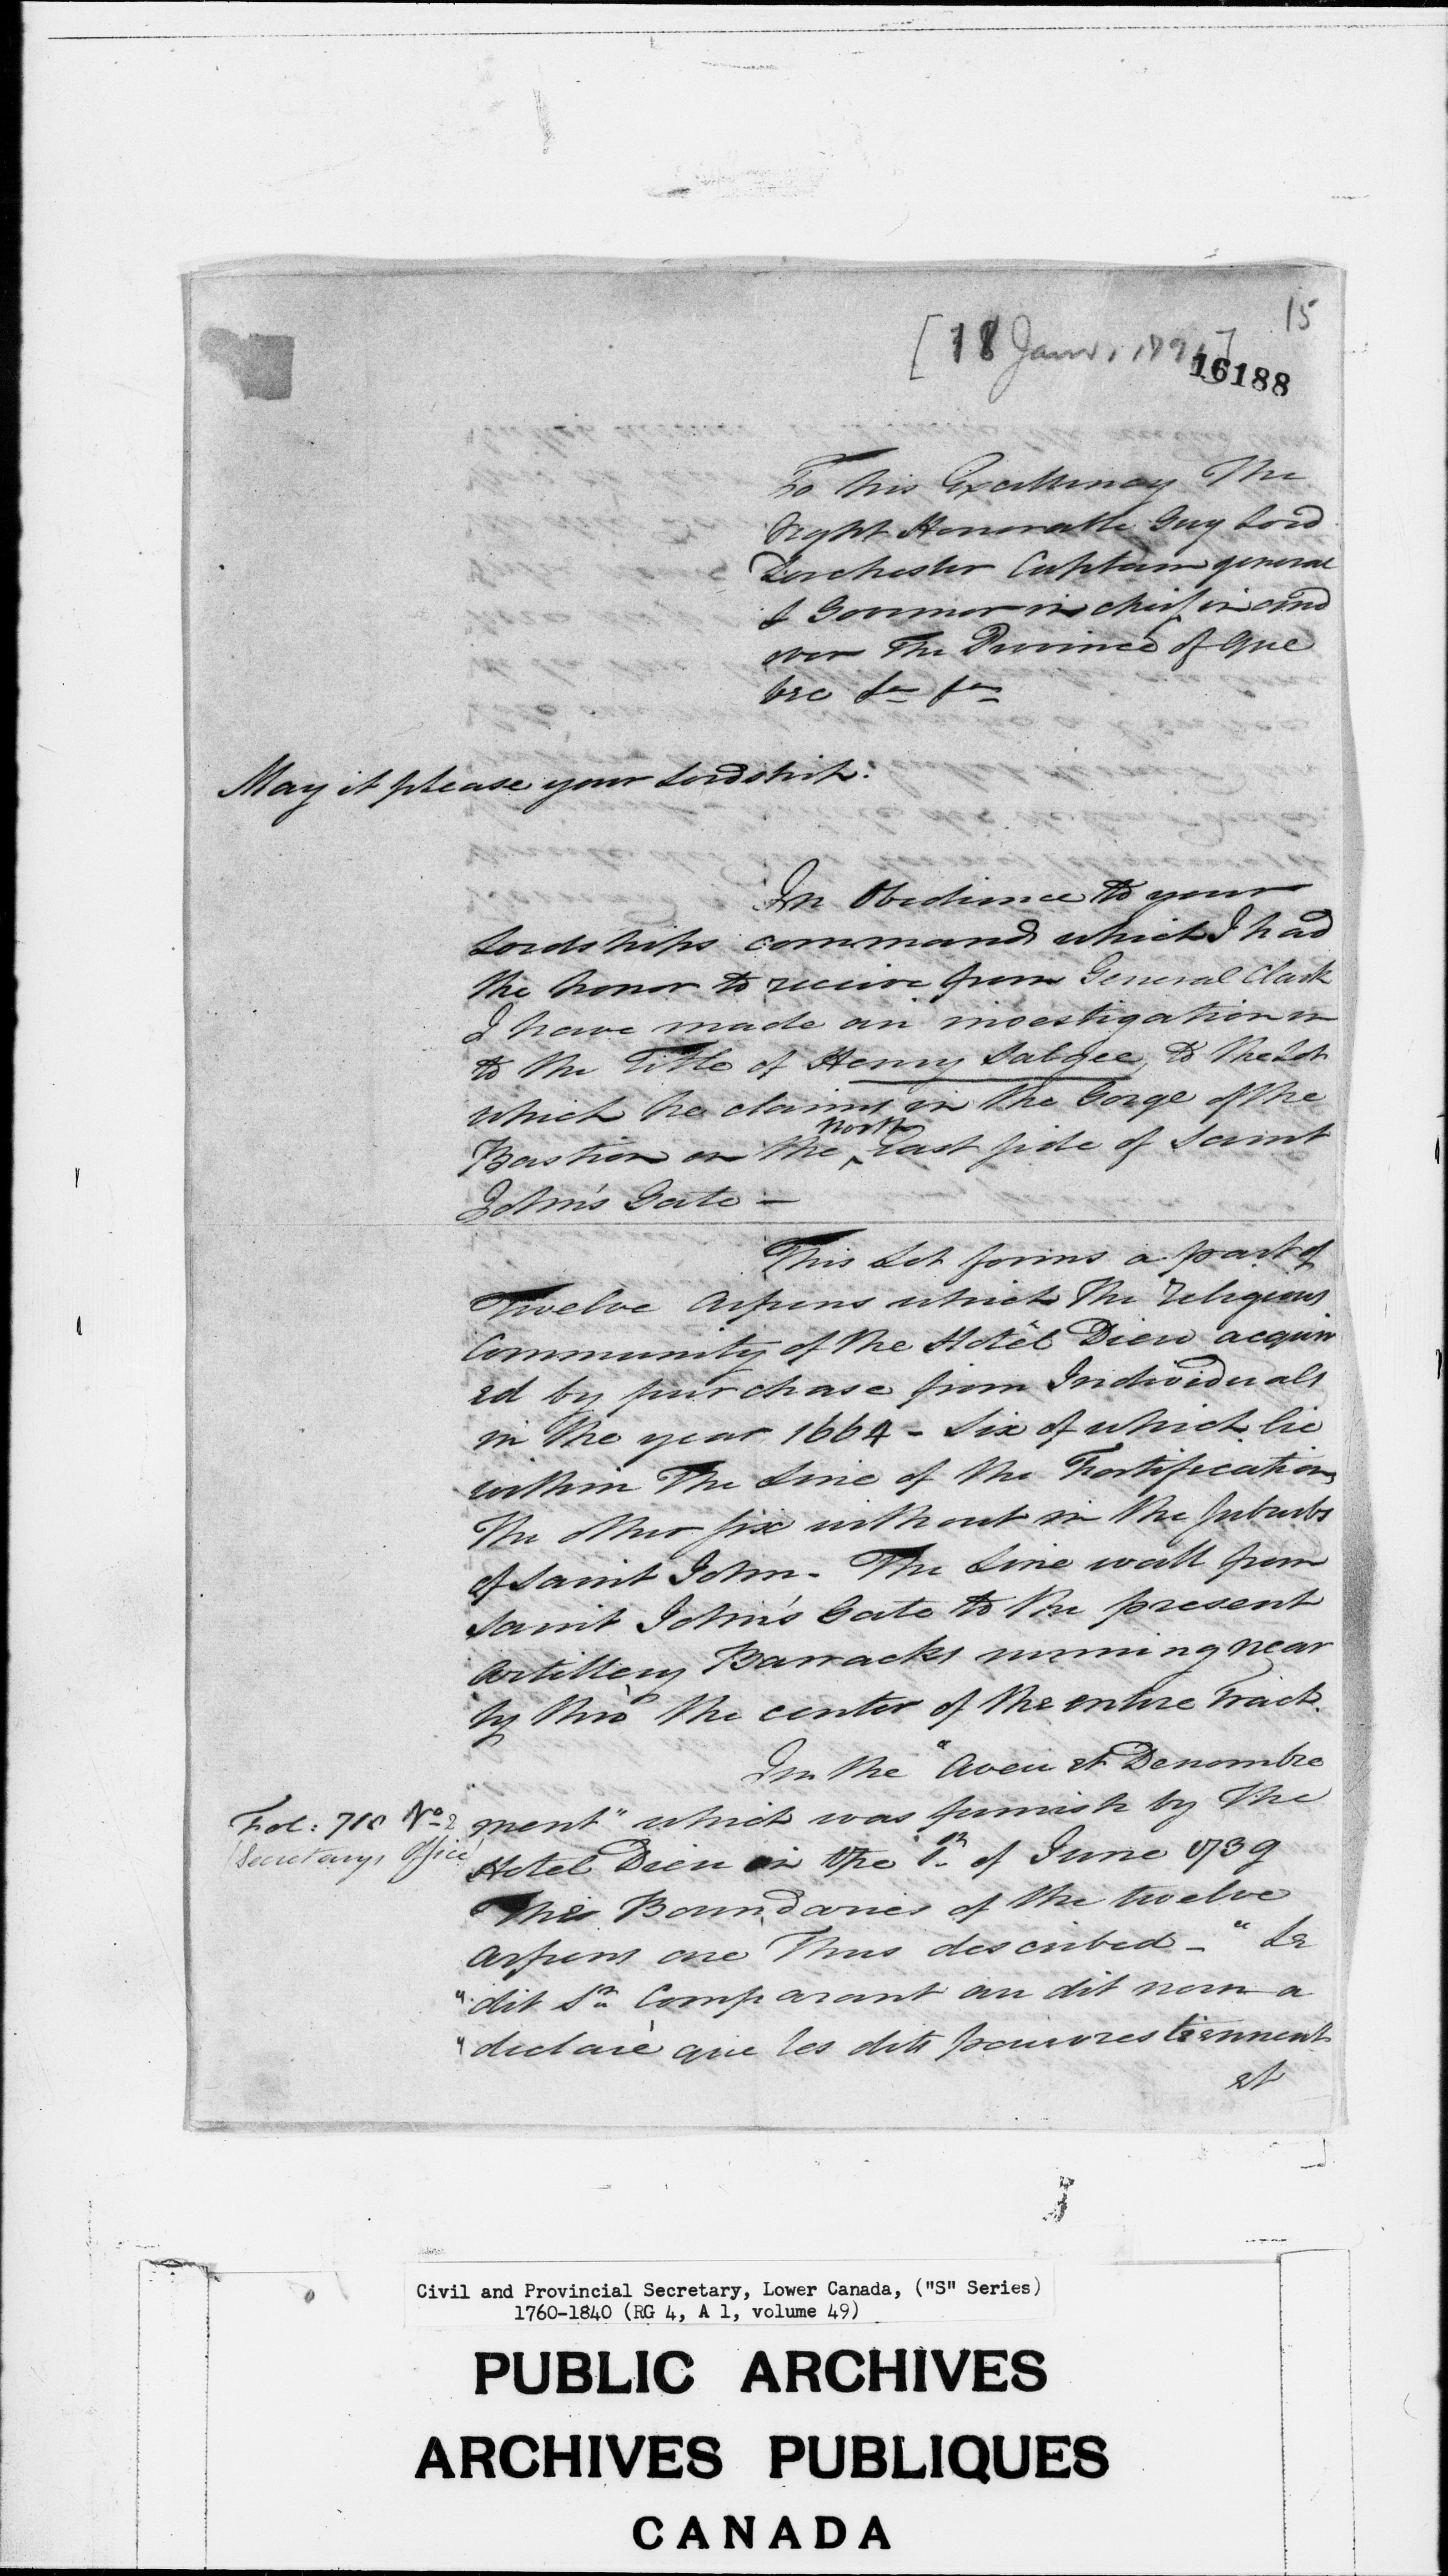 15
[18 Janv. 1791]
16188
To his Excellency The
Right Honorable Guy Lord
Dorchester Captain general
& Governor in chief in and
over The Province of Que
bec &c &c
May it please your Lordship.
In Obedience to your
Lordships commands which I had
the honor to receive from General Clark
I have made an investigation in
to the Title of Henry Salgee, to the Lot
which he claims in the Gorge of the
Bastion on the North East side of Saint
John's Gate —
This Lot forms a part of
Twelve Arpens which The religious
Community of the Hotêl Dieu acquir
ed by purchase from Individuals
in the year 1664 - Six of which lie
within The Line of the Fortifications
The other six without in the suburbs
of Saint John. The Line wall from
Saint John's Gate to the present
Artillery Barracks running near
ly thro' the center of the entire Tract.
In the "Aveu et Denombre
Fol: 718 No. 2
(Secretarys Office)
ment" which was furnish by The
Hotel Dieu in the of June 1739
The Boundaries of the twelve
arpens are Thus described - "Le
"dit Sr. Comparant au dit nom a
"declaré que les dits pauvres tiennent
et
Civil and Provincial Secretary, Lower Canada, ("S" Series)
1760-1840 (RG 4, A 1, volume 49)
PUBLIC ARCHIVES
ARCHIVES PUBLIQUES
CANADA